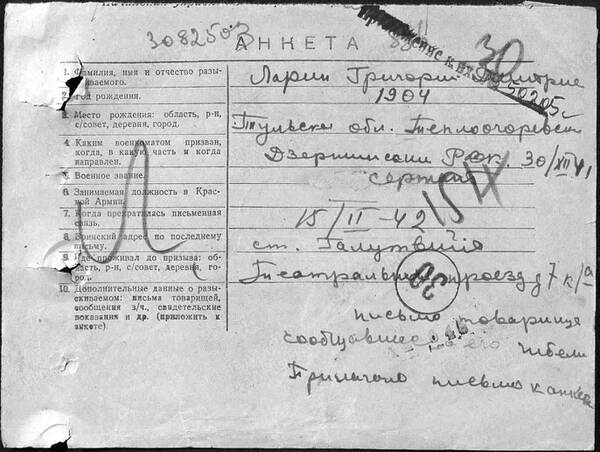 3082503
АНКЕТА
30
50205с
1. Фамилия, имя и отчество разы-
скиваемого.
Ларин Григорий Дмитрие
2. Год рождения.
1904
3. Место рождения: область, р-н,
с/совет, деревня, город.
Тульска обл. Теплоогаревски
4. Каким военкоматом призван,
когда, в какую часть и когда
направлен.
Дзержински Рвк. 30/XII 41
5. Военное звание.
сержант
6. Занимаемая должность в Крас-
ной Армии.
7. Когда прекратилась письменная
связь.
15/II-42
8. Воинский адрес по последнему
письму.
ст.
9. Где проживал до призыва: об-
ласть, р-н, с/совет, деревня, го-
род.
Театральный проезд д 7 к/а
30
10. Дополнительные данные о разы-
скиваемом: письма товарищей,
сообщения з/ч., свидетельские
показания и др. (приложить к
анкете).
письмо товарища
сообщавшее о его гибели
Прилагаю письмо к анкете